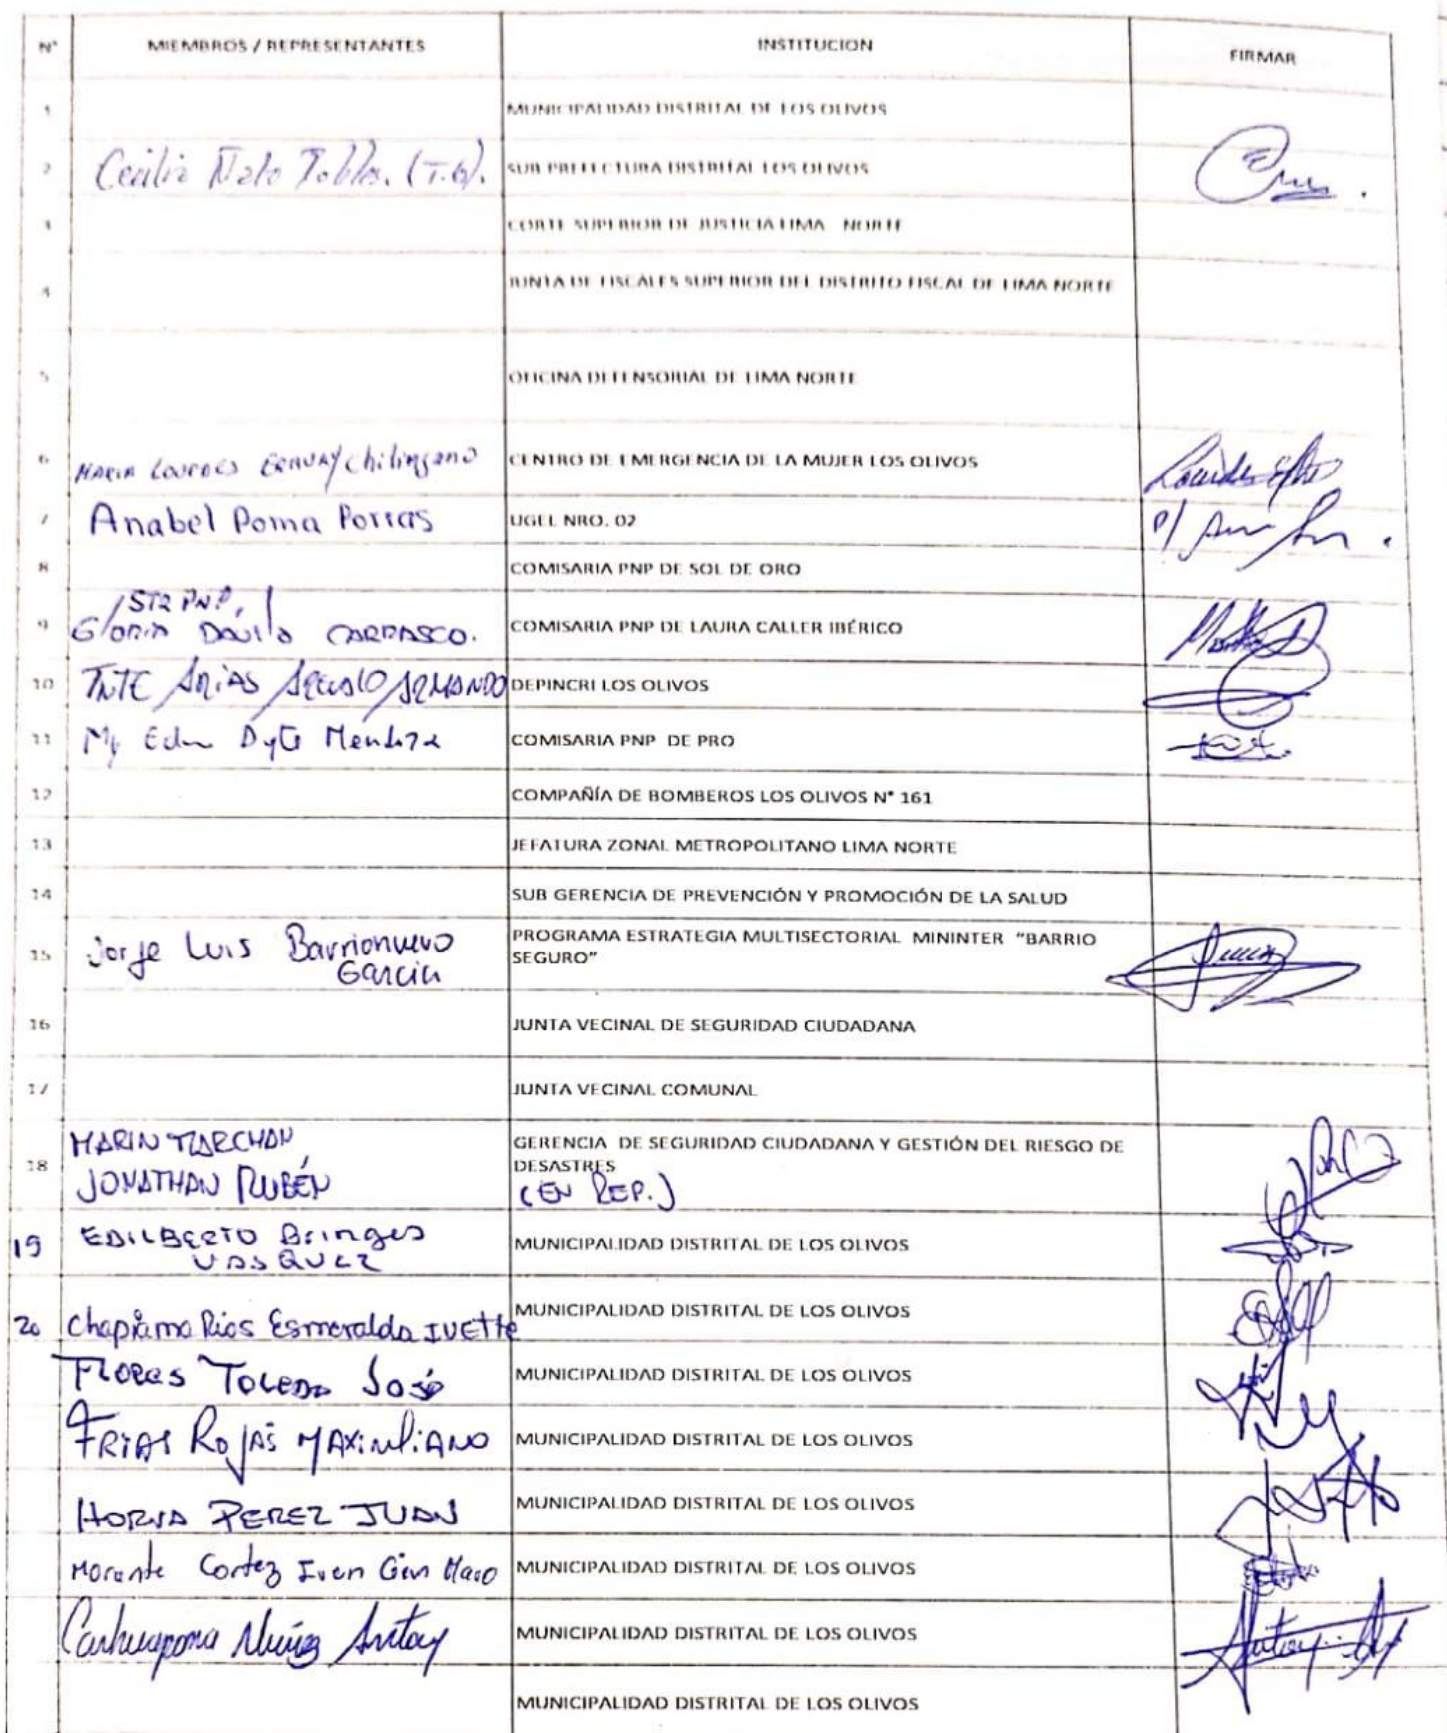 N° MIEMBROS / REPRESENTANTES INSTITUCION FIRMAR
1 MUNICIPALIDAD DISTRITAL DE LOS OLIVOS
2 Cecilia (T.G). SUB PREFECTURA DISTRITAL LOS OLIVOS
3 CORTE SUPERIOR DE JUSTICIA LIMA NORTE
4 JUNTA DE FISCALES SUPERIOR DEL DISTRITO FISCAL DE LIMA NORTE
5 OFICINA DEFENSORIAL DE LIMA NORTE
6 MARIA LOURDES CENTRO DE EMERGENCIA DE LA MUJER LOS OLIVOS
7 Anabel Poma Porras UGEL NRO. 02
8 COMISARIA PNP DE SOL DE ORO
ST2 PNP.
9 Gloria Davila CARRASCO. COMISARIA PNP DE LAURA CALLER IBÉRICO
10 TNTE ARIAS AREVALO ARMANDO DEPINCRI LOS OLIVOS
11 My Mendoza COMISARIA PNP DE PRO
12 COMPAÑÍA DE BOMBEROS LOS OLIVOS N° 161
13 JEFATURA ZONAL METROPOLITANO LIMA NORTE
14 SUB GERENCIA DE PREVENCIÓN Y PROMOCIÓN DE LA SALUD
15 Jorge Luis Barrionuevo PROGRAMA ESTRATEGIA MULTISECTORIAL MININTER "BARRIO
Garcia SEGURO"
16 JUNTA VECINAL DE SEGURIDAD CIUDADANA
17 JUNTA VECINAL COMUNAL
MARIN GERENCIA DE SEGURIDAD CIUDADANA Y GESTIÓN DEL RIESGO DE
18 DESASTRES
JONATHAN RUBÉN (EN REP.)
19 EDILBERTO Bringas MUNICIPALIDAD DISTRITAL DE LOS OLIVOS
VASQUEZ
20 Chapiama Rios Esmeralda IVETTE MUNICIPALIDAD DISTRITAL DE LOS OLIVOS
FLORES TOLEDO José MUNICIPALIDAD DISTRITAL DE LOS OLIVOS
FRIAS ROJAS MAXIMILIANO MUNICIPALIDAD DISTRITAL DE LOS OLIVOS
HORNA PEREZ JUAN MUNICIPALIDAD DISTRITAL DE LOS OLIVOS
Morante Cortez Ivan MUNICIPALIDAD DISTRITAL DE LOS OLIVOS
Carhuapoma Nuñez Antony MUNICIPALIDAD DISTRITAL DE LOS OLIVOS
MUNICIPALIDAD DISTRITAL DE LOS OLIVOS